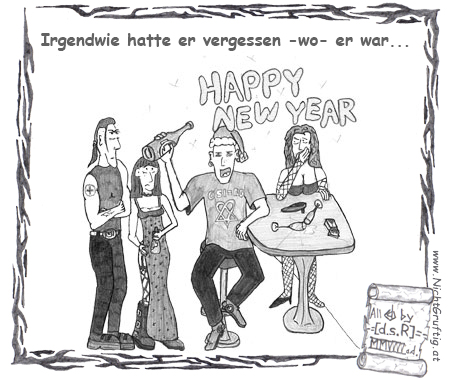 Irgendwie hatte er vergessen -wo- er war...
HAPPY
NEW YEAR
www.NichtGruftig.at
All by
-[d.s.R]=-